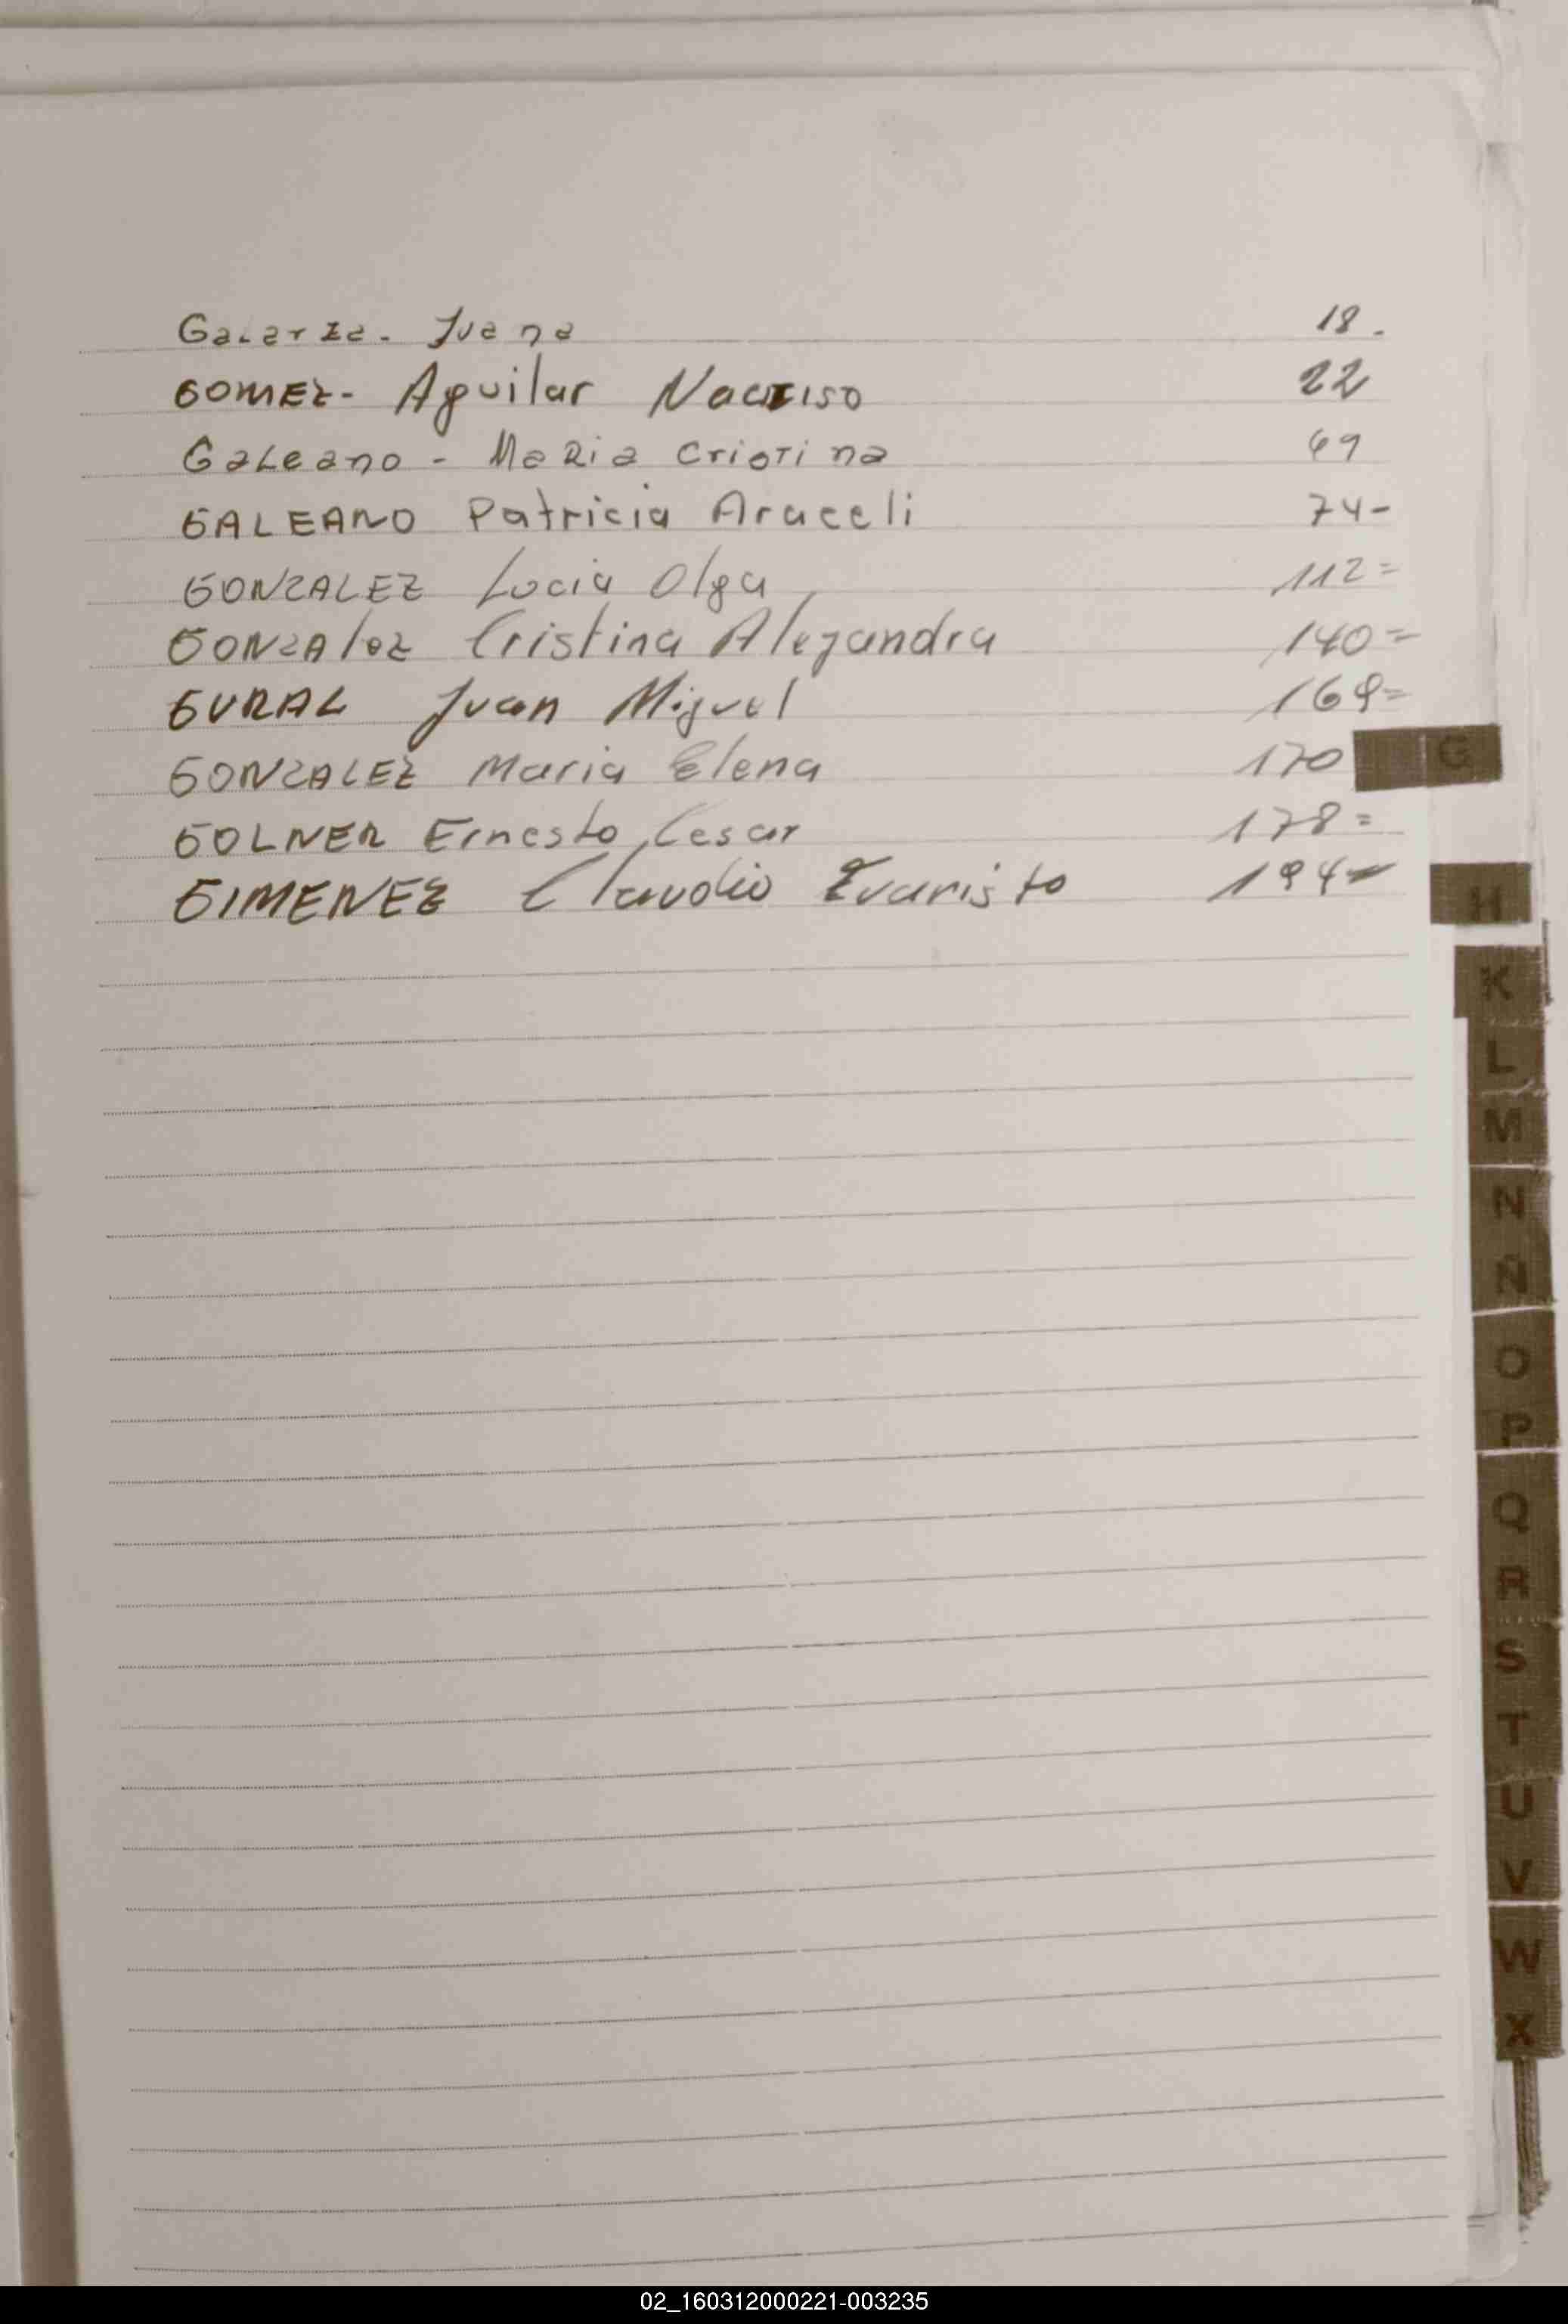 Galarza - Juana 18.
GOMEZ - Aguilar Narciso 22
Galeano - Maria Cristina 69
GALEANO Patricia Araceli 74-
GONZALEZ Lucia Olga 112=
GONZALEZ Cristina Alejandra 140=
GURAL Juan Miguel 169=
GONZALEZ Maria Elena 170
G
GOLNER Ernesto Cesar 178=
GIMENEZ Claudio Evaristo 194-
H
K
L
M
N
Ñ
O
P
Q
R
S
T
U
V
W
X
02_160312000221-003235